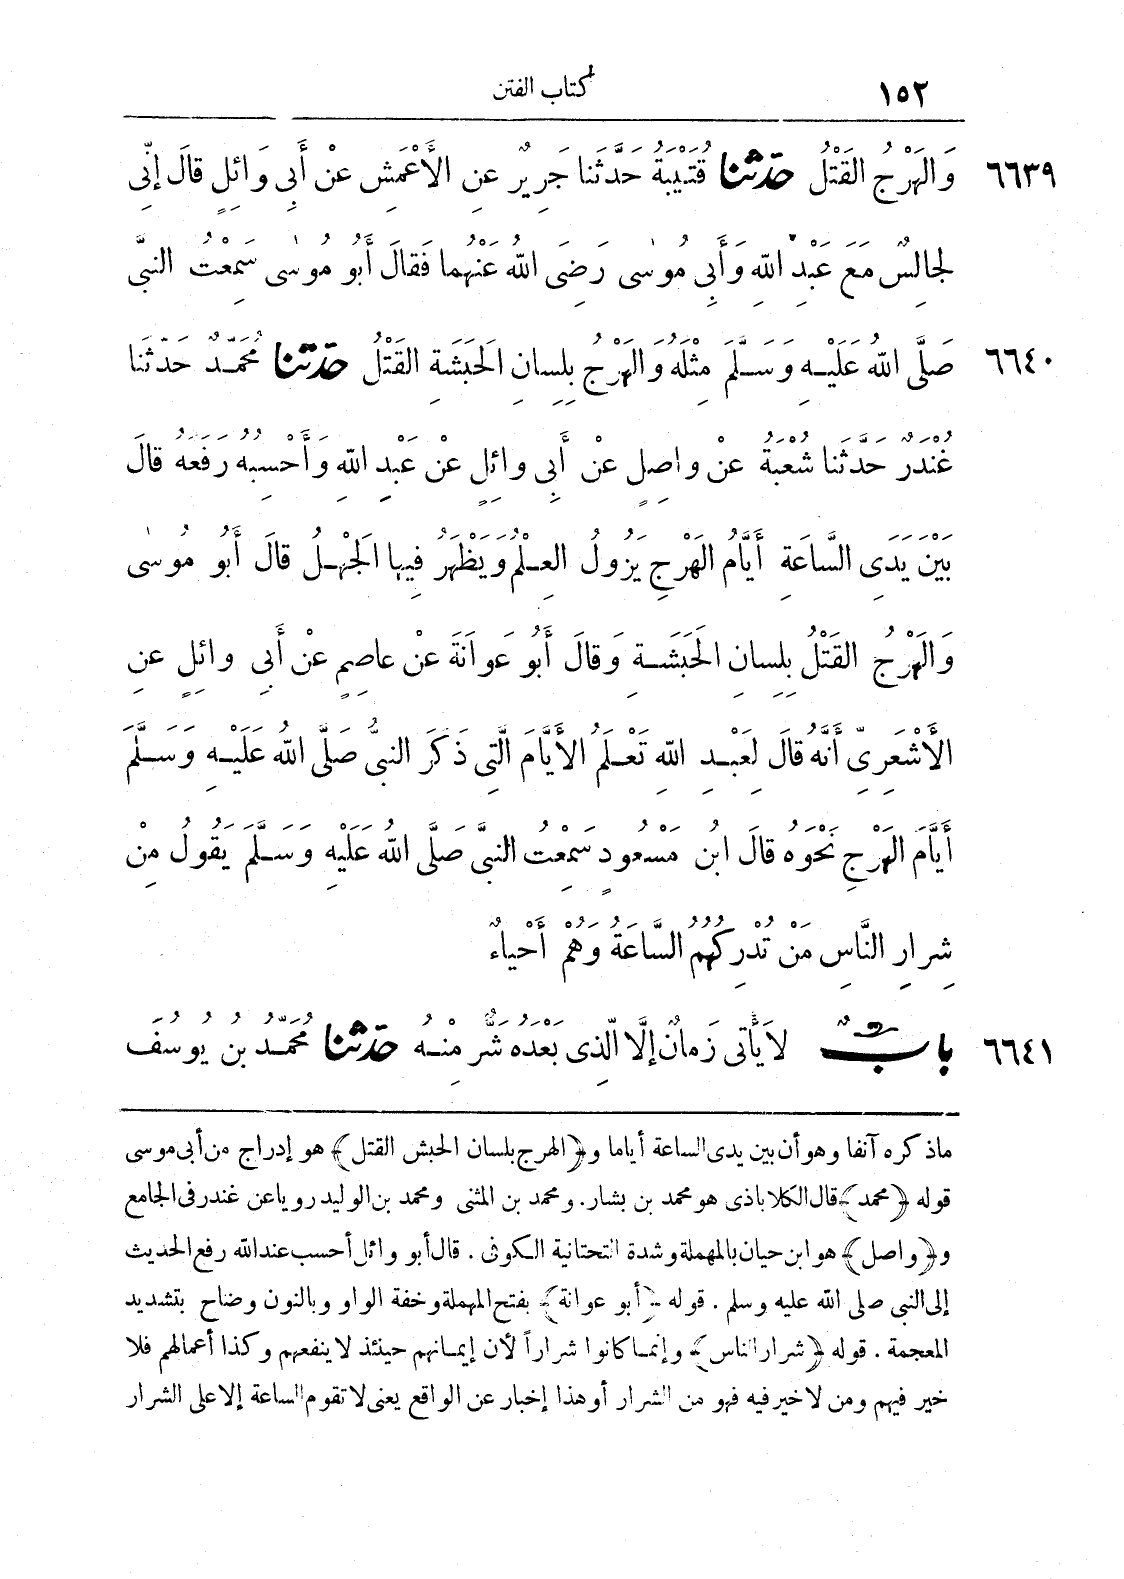 ١٥٢ كتاب الفتن
٦٦٣٩ وَالهَرْجُ القَتْلُ حَدَّثنا قُتَيْبَةُ حَدَّثَنا جَرِيرٌ عنِ الأَعْمَشِ عنْ أَبِى وَائِلٍ قالَ إنِّى
لجالِسٌ مَعَ عَبْدِ اللهِ وَأَبِى مُوسٰى رَضِىَ اللهُ عَنْهُما فَقالَ أَبُو مُوسٰى سَمِعْتُ النبىَّ
٦٦٤٠ صَلَّى اللهُ عَلَيْهِ وَسَلَّمَ مِثْلَهُ وَالهَرْجُ بِلِسانِ الحَبَشَةِ القَتْلُ حَدَّثنا مُحَمَّدٌ حَدَّثَنا
غُنْدَرٌ حَدَّثَنا شُعْبَةُ عنْ واصِلٍ عنْ أَبِى وائِلٍ عنْ عَبْدِ اللهِ وَأَحْسِبُهُ رَفَعَهُ قالَ
بَيْنَ يَدَىِ السَّاعَةِ أَيَّامُ الهَرْجِ يَزُولُ العِلْمُ وَيَظْهَرُ فِيها الجَهْلُ قالَ أَبُو مُوسٰى
وَالهَرْجُ القَتْلُ بِلِسانِ الحَبَشَةِ وَقالَ أَبُو عَوانَةَ عنْ عاصِمٍ عنْ أَبِى وائِلٍ عنِ
الأَشْعَرِىِّ أَنَّهُ قالَ لِعَبْدِ اللهِ تَعْلَمُ الأَيَّامَ الَّتِى ذَكَرَ النبىُّ صَلَّى اللهُ عَلَيْهِ وَسَلَّمَ
أَيَّامَ الهَرْجِ نَحْوَهُ قالَ ابنُ مَسْعُودٍ سَمِعْتُ النبىَّ صَلَّى اللهُ عَلَيْهِ وَسَلَّمَ يَقُولُ مِنْ
شِرارِ النَّاسِ مَنْ تُدْرِكُهُمُ السَّاعَةُ وَهُمْ أَحْياءٌ
٦٦٤١ بابٌ لاَ يَأْتِى زَمانٌ إلَّا الَّذِى بَعْدَهُ شَرٌّ مِنْهُ حَدَّثنا مُحَمَّدُ بنُ يُوسُفَ
ماذكره آنفا وهو أن بين يدى الساعة أياما و﴿الهرج بلسان الحبش القتل﴾ هو إدراج من أبى موسى
قوله ﴿محمد﴾ قال الكلاباذى هو محمد بن بشار. ومحمد بن المثنى ومحمد بن الوليد رويا عن غندر فى الجامع
و﴿واصل﴾ هو ابن حيان بالمهملة وشدة التحتانية الكوفى . قال أبو وائل أحسب عند الله رفع الحديث
إلى النبى صلى الله عليه وسلم . قوله ﴿أبو عوانة﴾ بفتح المهملة وخفة الواو وبالنون وضاح بتشديد
المعجمة . قوله ﴿شرار الناس﴾ وإنما كانوا شراراً لأن إيمانهم حينئذ لا ينفعهم وكذا أعمالهم فلا
خير فيهم ومن لاخير فيه فهو من الشرار أو هذا إخبار عن الواقع يعنى لا تقوم الساعة إلا على الشرار